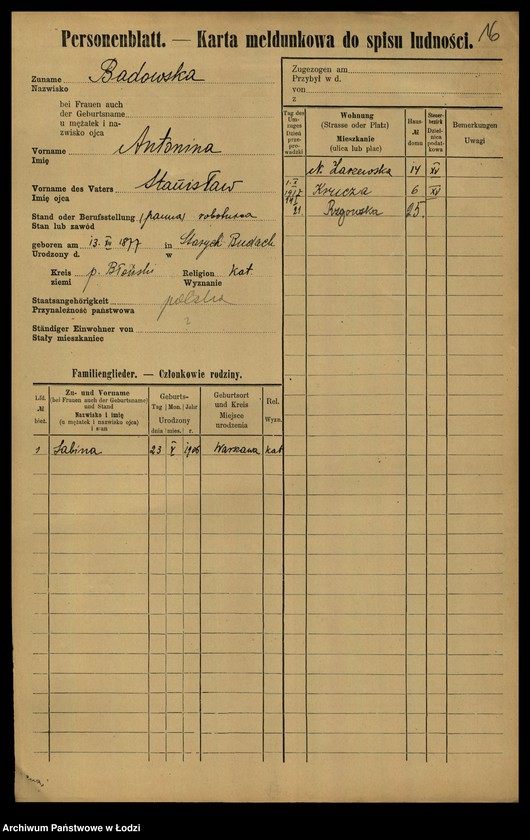 16
Personenblatt. — Karta meldunkowa do spisu ludności.
Zuname Badowska
Nazwisko
bei Frauen auch
der Geburtsname
u mężatek i na-
zwisko ojca
Vorname Antonina
Imię
Vorname des Vaters Stanisław
Imię ojca
Stand oder Berufsstellung (panna) robotnica
Stan lub zawód
geboren am 13. XII 1877 in Starych Budach
Urodzony d. w
Kreis p. Błoński Religion kat.
ziemi Wyznanie
Staatsangehörigkeit polska
Przynależność państwowa
Ständiger Einwohner von ?
Stały mieszkaniec
Zugezogen am
Przybył w d.
von
z
Tag des Um-zuges Dzień prze-pro-wadzki
Wohnung (Strasse oder Platz) Mieszkanie (ulica lub plac)
Haus- № domu
Steuer-bezirk Dziel-nica podat-kowa
Bemerkungen Uwagi
N. Zarzewska 14 XV
1. X 1917 Krucza 6 XV
21. Rzgowska 25.
Familienglieder. — Członkowie rodziny.
Lfd. № bież.
Zu- und Vorname (bei Frauen auch der Geburtsname) und Stand Nazwisko i imię (u mężatek i nazwisko ojca) i stan
Geburts- Tag Mon. Jahr Urodzony dnia mies. r.
Geburtsort und Kreis Miejsce urodzenia
Rel. Wyzn.
1 Sabina 23 V 1906 Warszawa kat
Archiwum Państwowe w Łodzi